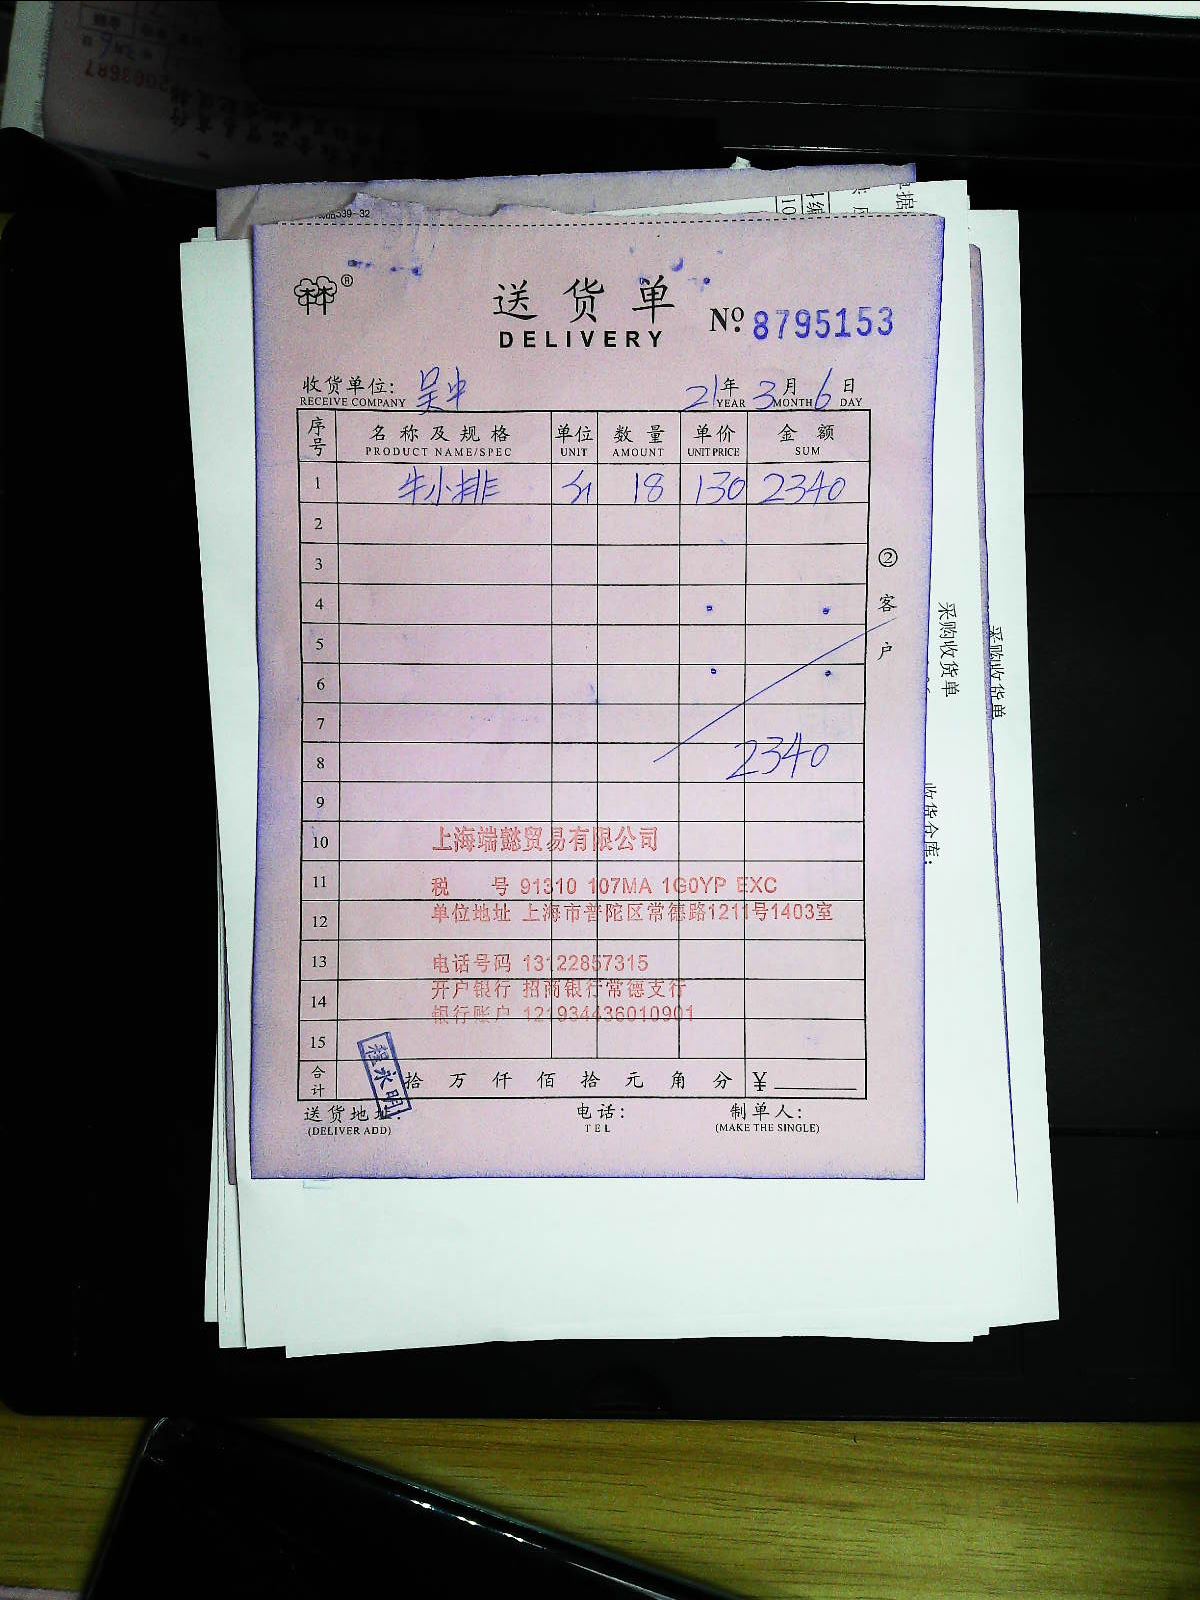 送货单
DELIVERY
№ 8795153
收货单位: 吴中 21年 3月 6日
RECEIVE COMPANY YEAR MONTH DAY
序号 名称及规格 单位 数量 单价 金额
PRODUCT NAME/SPEC UNIT AMOUNT UNIT PRICE SUM
1 牛小排 18 130 2340
2
3
4
5
6
7
8 2340
9
10 上海端懿贸易有限公司
11 税 号 91310 107MA 1G0YP EXC
12 单位地址 上海市普陀区常德路1211号1403室
13 电话号码 13122857315
14 开户银行 招商银行常德支行
银行账户 121934436010901
15
合计 拾 万 仟 佰 拾 元 角 分 ¥
程永明
送货地址: 电话: 制单人:
(DELIVER ADD) TEL (MAKE THE SINGLE)
②客户
采购收货单
收货仓库:
采购收货单